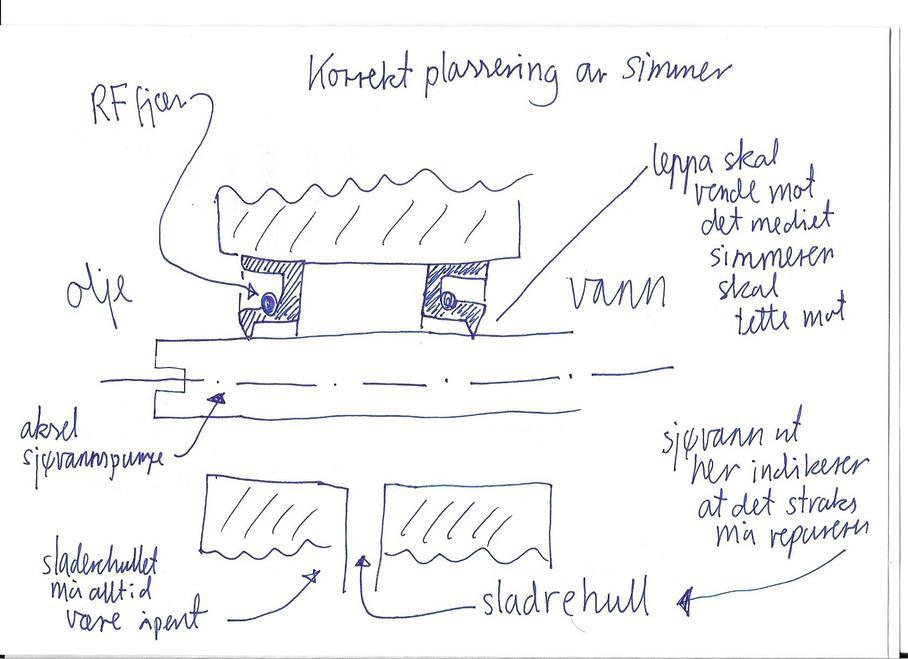 Korrekt plassering av simmer
RF fjær
leppa skal
vende mot
det mediet
simmeren
skal
tette mot
olje
vann
aksel
sjøvannspumpe
sjøvann ut
her indikerer
at det straks
må repareres
sladrehullet
må alltid
være åpent
sladrehull